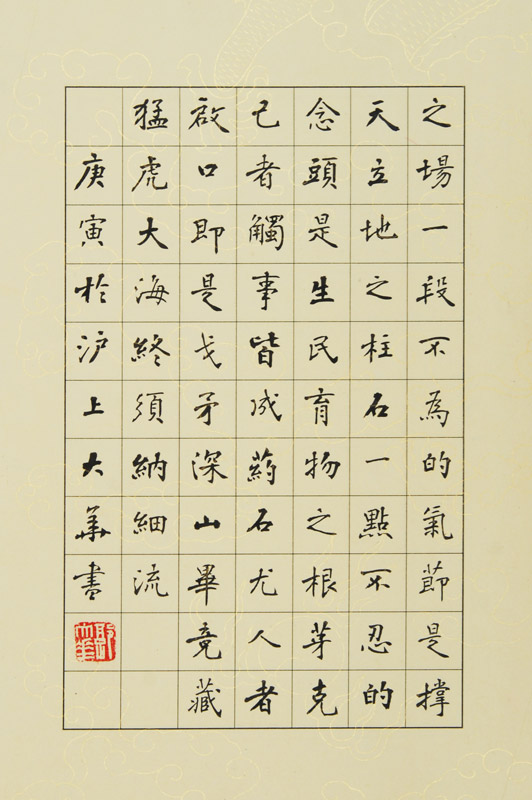 之場一段不為的氣節是撑
天立地之柱石一點不忍的
念頭是生民育物之根芽克
己者觸事皆成藥石尤人者
啟口即是戈矛深山畢竟藏
猛虎大海終須納細流
庚寅於沪上大華書